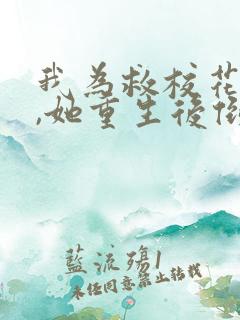 我為救校花
,她重生後
藍流殤1
未经同意禁止转载